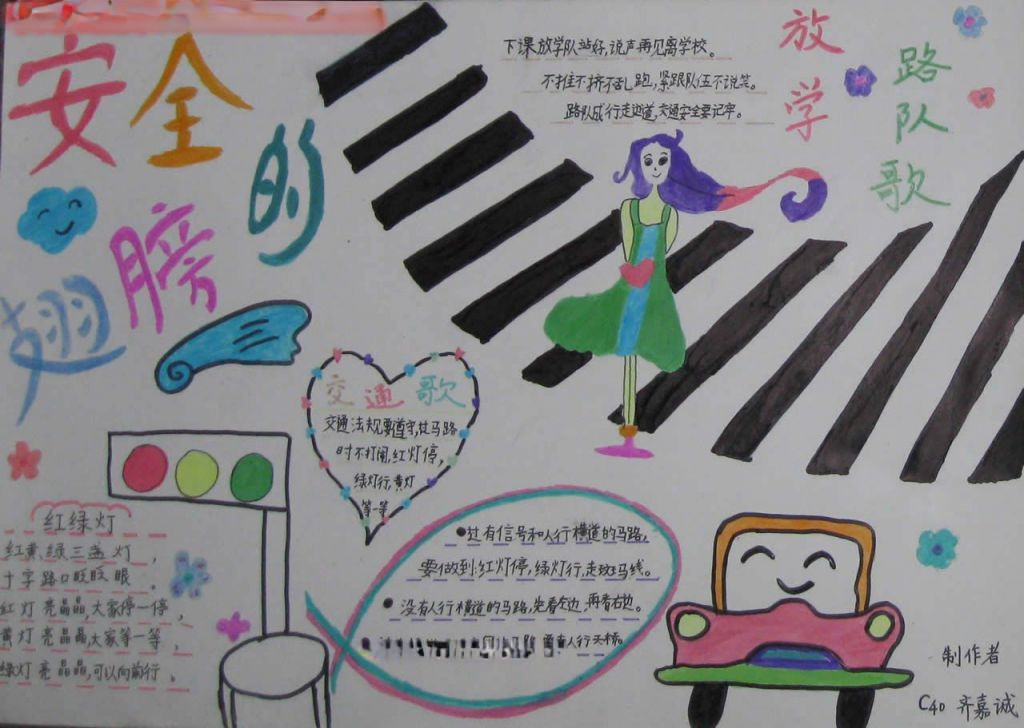 安全的
翅膀
放学
路队歌
下课放学队站好,说声再见离学校。
不推不挤不乱跑,紧跟队伍不说笑。
路队成行走边道,交通安全要记牢。
交通歌
交通法规要遵守,过马路
时不打闹,红灯停,
绿灯行,黄灯
等一等
红绿灯
红黄绿三盏灯,
十字路口眨眨眼。
红灯亮晶晶,大家停一停,
黄灯亮晶晶,大家等一等,
绿灯亮晶晶,可以向前行。
●过有信号和人行横道的马路,
要做到:红灯停,绿灯行,走斑马线。
●没有人行横道的马路,先看左边,再看右边。
人行天桥。
制作者
C40 齐嘉诚